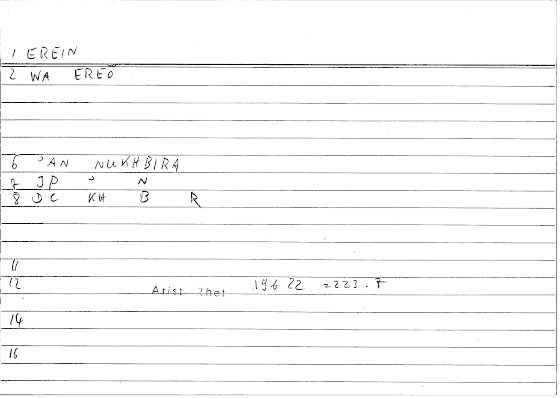 1 EREIN
2 WA EREO
6 ʾAN NUKHBIRA
7 JP ʾ N
8 DC KH B R
11
12 Arist Rhet 196 22 = 223.7
14
16